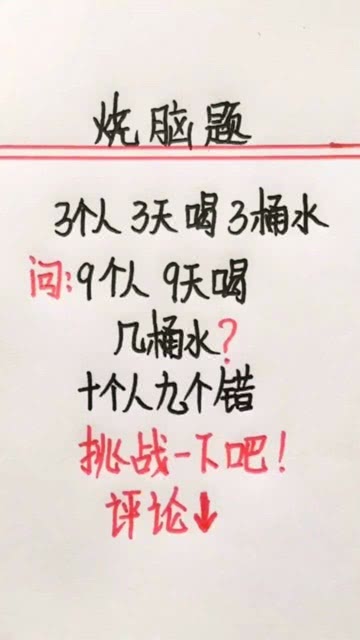 烧脑题
3个人3天喝3桶水
问:9个人 9天喝
几桶水?
十个人九个错
挑战一下吧!
评论↓